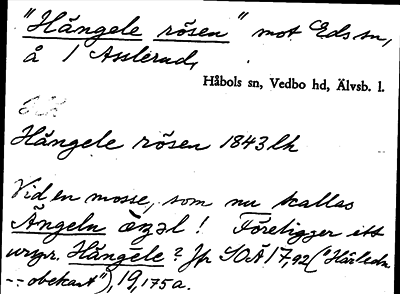 "Hångele rösen" mot Eds sn,
å 1 Asslerud,
Håbols sn, Vedbo hd, Älvsb. l.
Hångele rösen 1843 lh
Vid en mosse, som nu kallas
Ängeln ! Föreligger ett
urspr. Hångele? Jfr SOÄ 17,92 ("Härledn
-- obekant"), 19,175a.